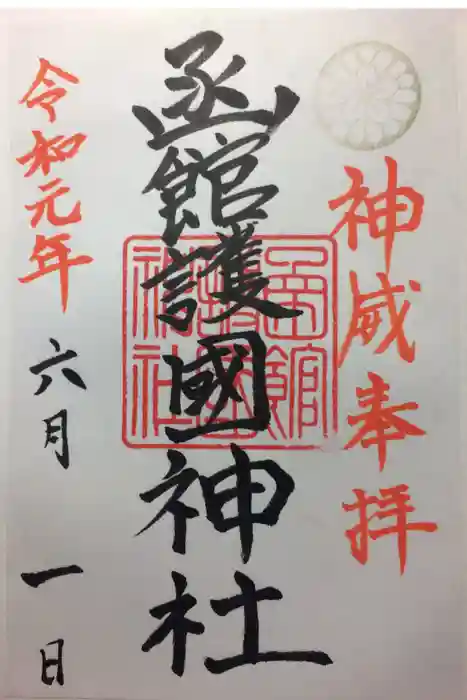 神威奉拝
函館護國神社
函館護國神社
令和元年六月一日